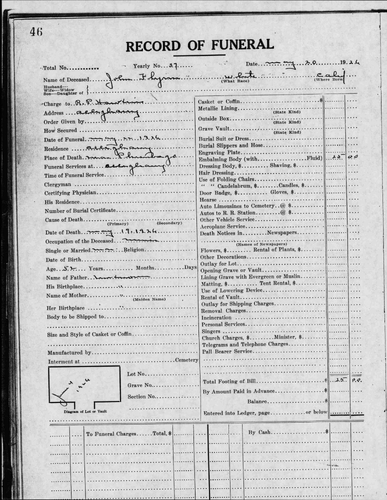 46
RECORD OF FUNERAL
Total No. Yearly No. 27 Date May 20 1926
Name of Deceased John Flynn White Calif
(What Race) (Where Born)
Husband—
Wife—Widow of
Son—Daughter
Charge to R. P. Hawkins
Address Alleghany
Order Given by
How Secured
Date of Funeral May 1926
Residence Alleghany
Place of Death
Funeral Services at Alleghany
Time of Funeral Service
Clergyman
Certifying Physician
His Residence
Number of Burial Certificate
Cause of Death
(Primary) (Secondary)
Date of Death May 17, 1926
Occupation of the Deceased Miner
Single or Married
Religion
Date of Birth
Age Years Months Days
Name of Father unknown
His Birthplace "
Name of Mother "
(Maiden Name)
Her Birthplace "
Body to be Shipped to
Size and Style of Casket or Coffin
Manufactured by
Interment at Cemetery
Lot No.
Grave No.
Section No.
Diagram of Lot or Vault
Casket or Coffin
Metallic Lining
(State Kind)
Outside Box
(State Kind)
Grave Vault
(State Kind)
Burial Suit or Dress
Burial Slippers and Hose
Engraving Plate
Embalming Body (with Fluid) 25 00
Dressing Body, $ Shaving, $
Hair Dressing
Use of Folding Chairs
" " Candelabrum, $ Candles, $
Door Badge, $ Gloves, $
Hearse
Auto Limousines to Cemetery @ $
Autos to R. R. Station @ $
Other Vehicle Service
Aeroplane Service
Death Notices in Newspapers
(Names of Newspapers)
Flowers, $ Rental of Plants, $
Other Decorations
Outlay for Lot
Opening Grave or Vault
Lining Grave with Evergreen or Muslin
Matting, $ Tent Rental, $
Use of Lowering Device
Rental of Vault
Outlay for Shipping Charges
Removal Charges
Incineration
Personal Services
Singers
Church Charges, $ Minister, $
Telegrams and Telephone Charges
Pall Bearer Service
Total Footing of Bill $ 25 00
By Amount Paid in Advance
Balance
Entered into Ledger, page or below
To Funeral Charges Total, $ By Cash $